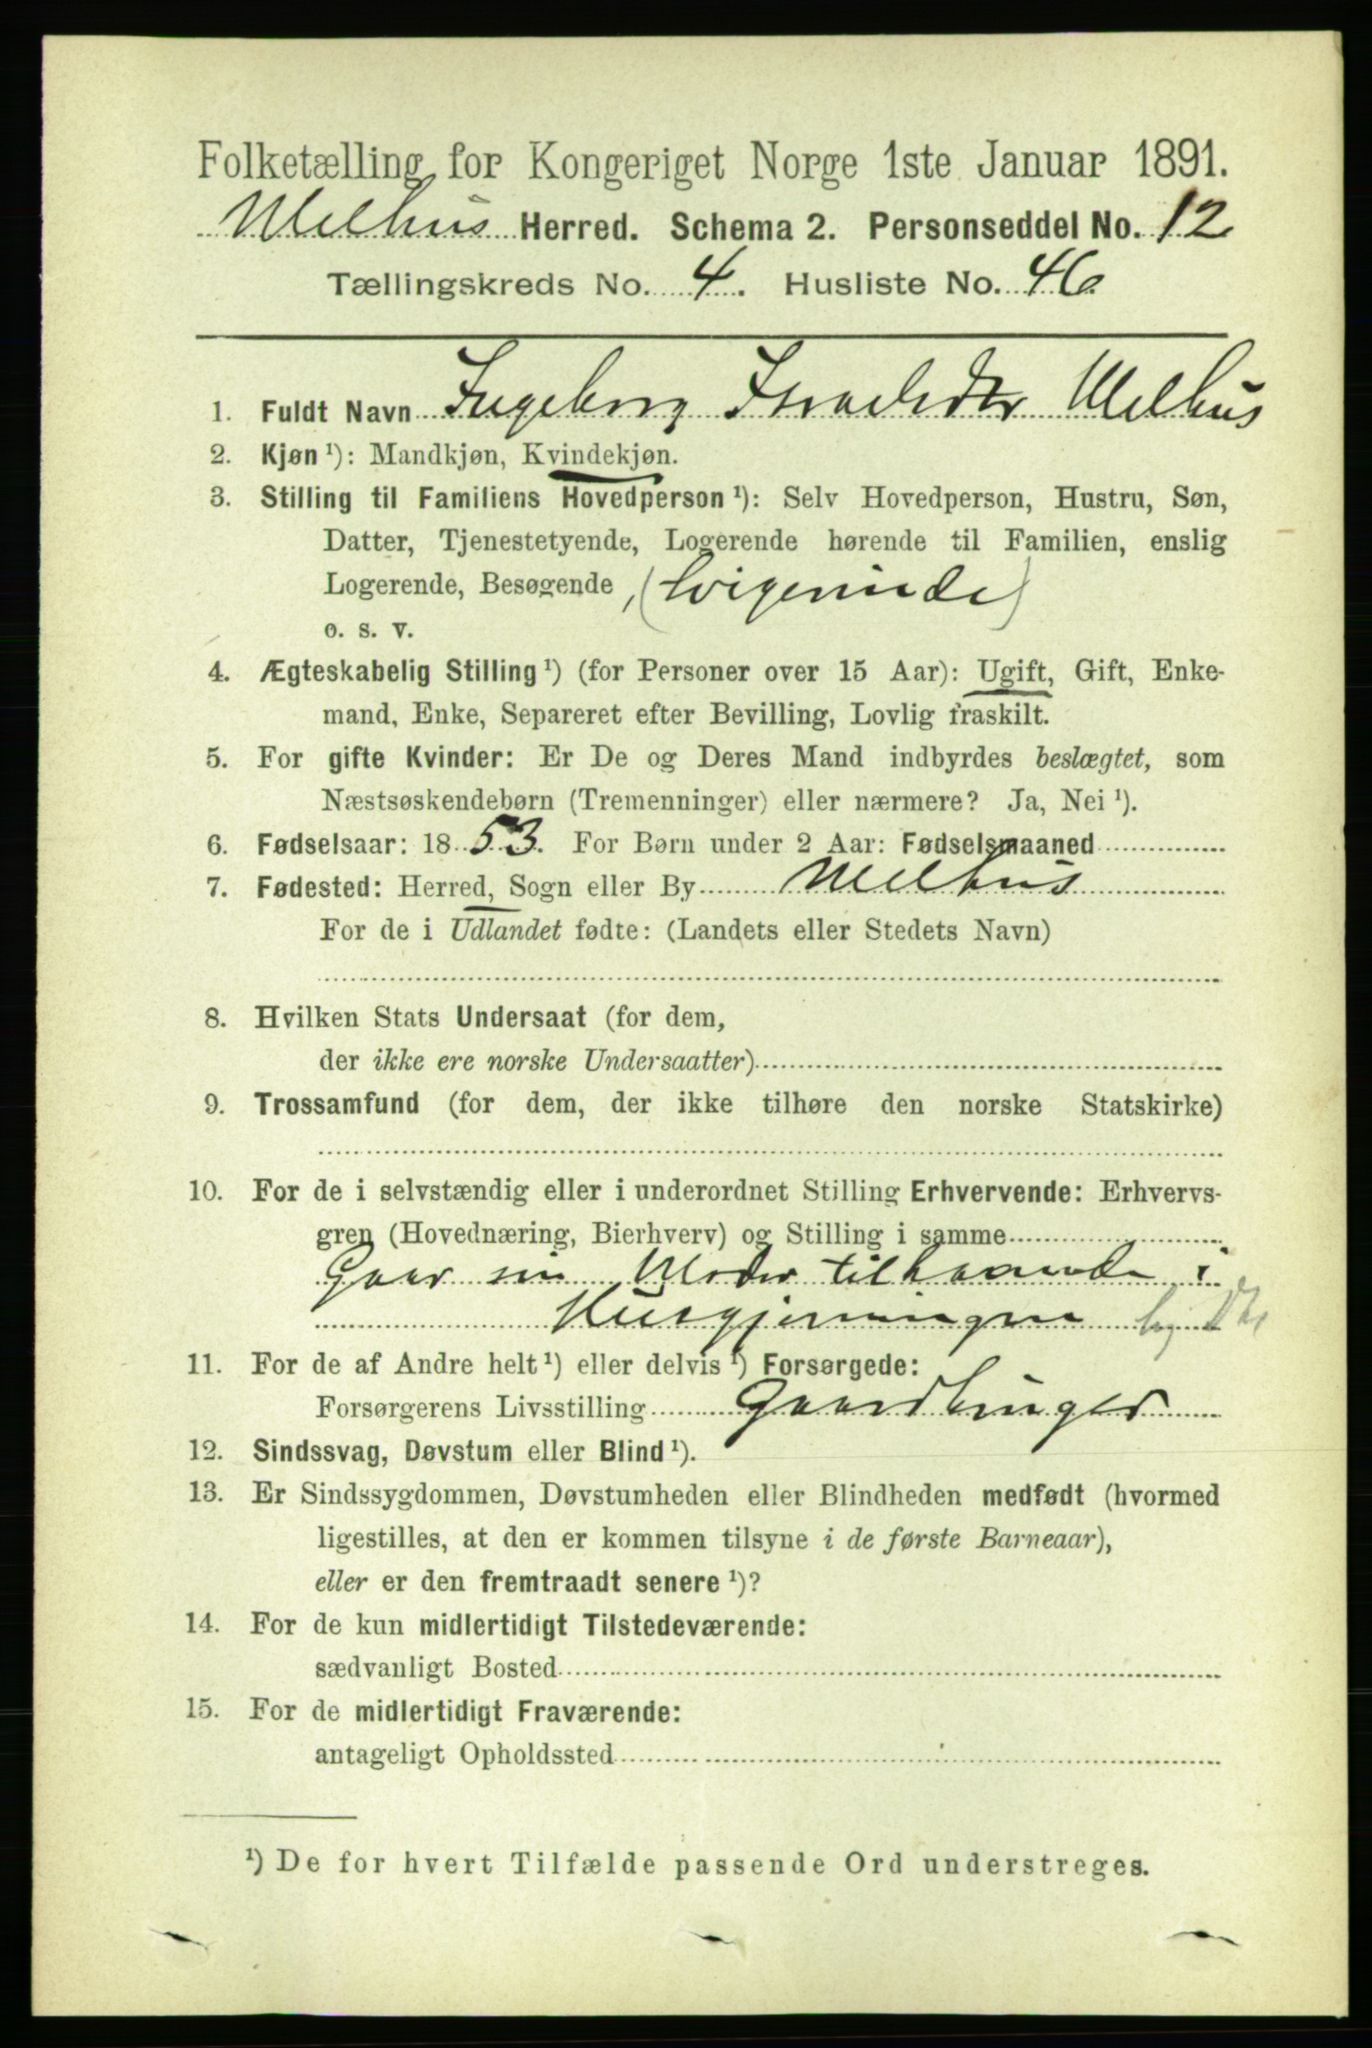 Folketælling for Kongeriget Norge 1ste Januar 1891.
Melhus Herred. Schema 2. Personseddel No. 12
Tællingskreds No. 4. Husliste No. 46
1. Fuldt Navn Ingeborg Israelsdtr Melhus
2. Kjøn ¹): Mandkjøn, Kvindekjøn.
3. Stilling til Familiens Hovedperson ¹): Selv Hovedperson, Hustru, Søn,
Datter, Tjenestetyende, Logerende hørende til Familien, enslig
Logerende, Besøgende, (Svigerinde)
o. s. v.
4. Ægteskabelig Stilling ¹) (for Personer over 15 Aar): Ugift, Gift, Enke-
mand, Enke, Separeret efter Bevilling, Lovlig fraskilt.
5. For gifte Kvinder: Er De og Deres Mand indbyrdes beslægtet, som
Næstsøskendebørn (Tremenninger) eller nærmere? Ja, Nei ¹).
6. Fødselsaar: 1853. For Børn under 2 Aar: Fødselsmaaned
7. Fødested: Herred, Sogn eller By Melhus
For de i Udlandet fødte: (Landets eller Stedets Navn)
8. Hvilken Stats Undersaat (for dem,
der ikke ere norske Undersaatter)
9. Trossamfund (for dem, der ikke tilhøre den norske Statskirke)
10. For de i selvstændig eller i underordnet Stilling Erhvervende: Erhvervs-
gren (Hovednæring, Bierhverv) og Stilling i samme
Gaar sin Moder tilhaande i
Husgjerningen
11. For de af Andre helt ¹) eller delvis ¹) Forsørgede:
Forsørgerens Livsstilling Gaardbruger
12. Sindssvag, Døvstum eller Blind ¹).
13. Er Sindssygdommen, Døvstumheden eller Blindheden medfødt (hvormed
ligestilles, at den er kommen tilsyne i de første Barneaar),
eller er den fremtraadt senere ¹)?
14. For de kun midlertidigt Tilstedeværende:
sædvanligt Bosted
15. For de midlertidigt Fraværende:
antageligt Opholdssted
¹) De for hvert Tilfælde passende Ord understreges.